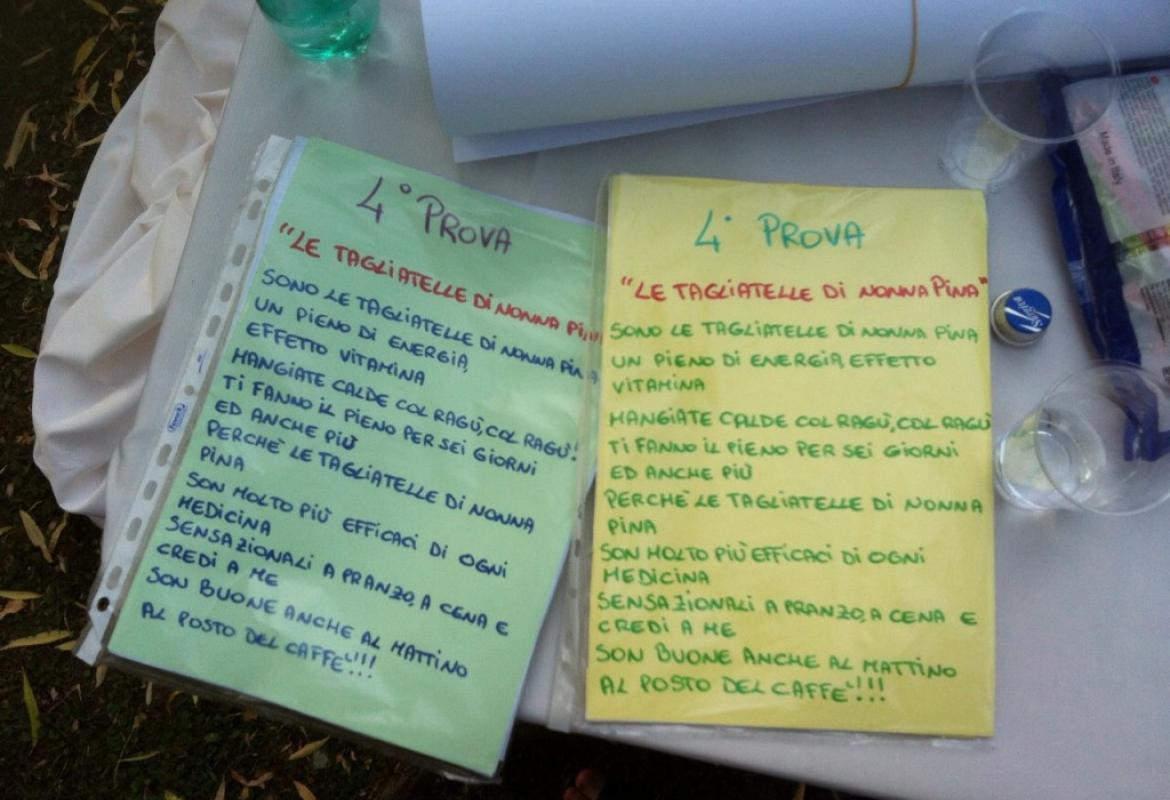 4° PROVA
"LE TAGLIATELLE DI NONNA PINA
SONO LE TAGLIATELLE DI NONNA PINA
UN PIENO DI ENERGIA,
EFFETTO VITAMINA
MANGIATE CALDE COL RAGÙ, COL RAGÙ!
TI FANNO IL PIENO PER SEI GIORNI
ED ANCHE PIÙ
PERCHÈ LE TAGLIATELLE DI NONNA
PINA
SON MOLTO PIÙ EFFICACI DI OGNI
MEDICINA
SENSAZIONALI A PRANZO, A CENA E
CREDI A ME
SON BUONE ANCHE AL MATTINO
AL POSTO DEL CAFFE'!!!
4° PROVA
"LE TAGLIATELLE DI NONNA PINA"
SONO LE TAGLIATELLE DI NONNA PINA
UN PIENO DI ENERGIA, EFFETTO
VITAMINA
MANGIATE CALDE COL RAGÙ, COL RAGÙ
TI FANNO IL PIENO PER SEI GIORNI
ED ANCHE PIÙ
PERCHÈ LE TAGLIATELLE DI NONNA
PINA
SON MOLTO PIÙ EFFICACI DI OGNI
MEDICINA
SENSAZIONALI A PRANZO, A CENA E
CREDI A ME
SON BUONE ANCHE AL MATTINO
AL POSTO DEL CAFFE'!!!
Made in Italy